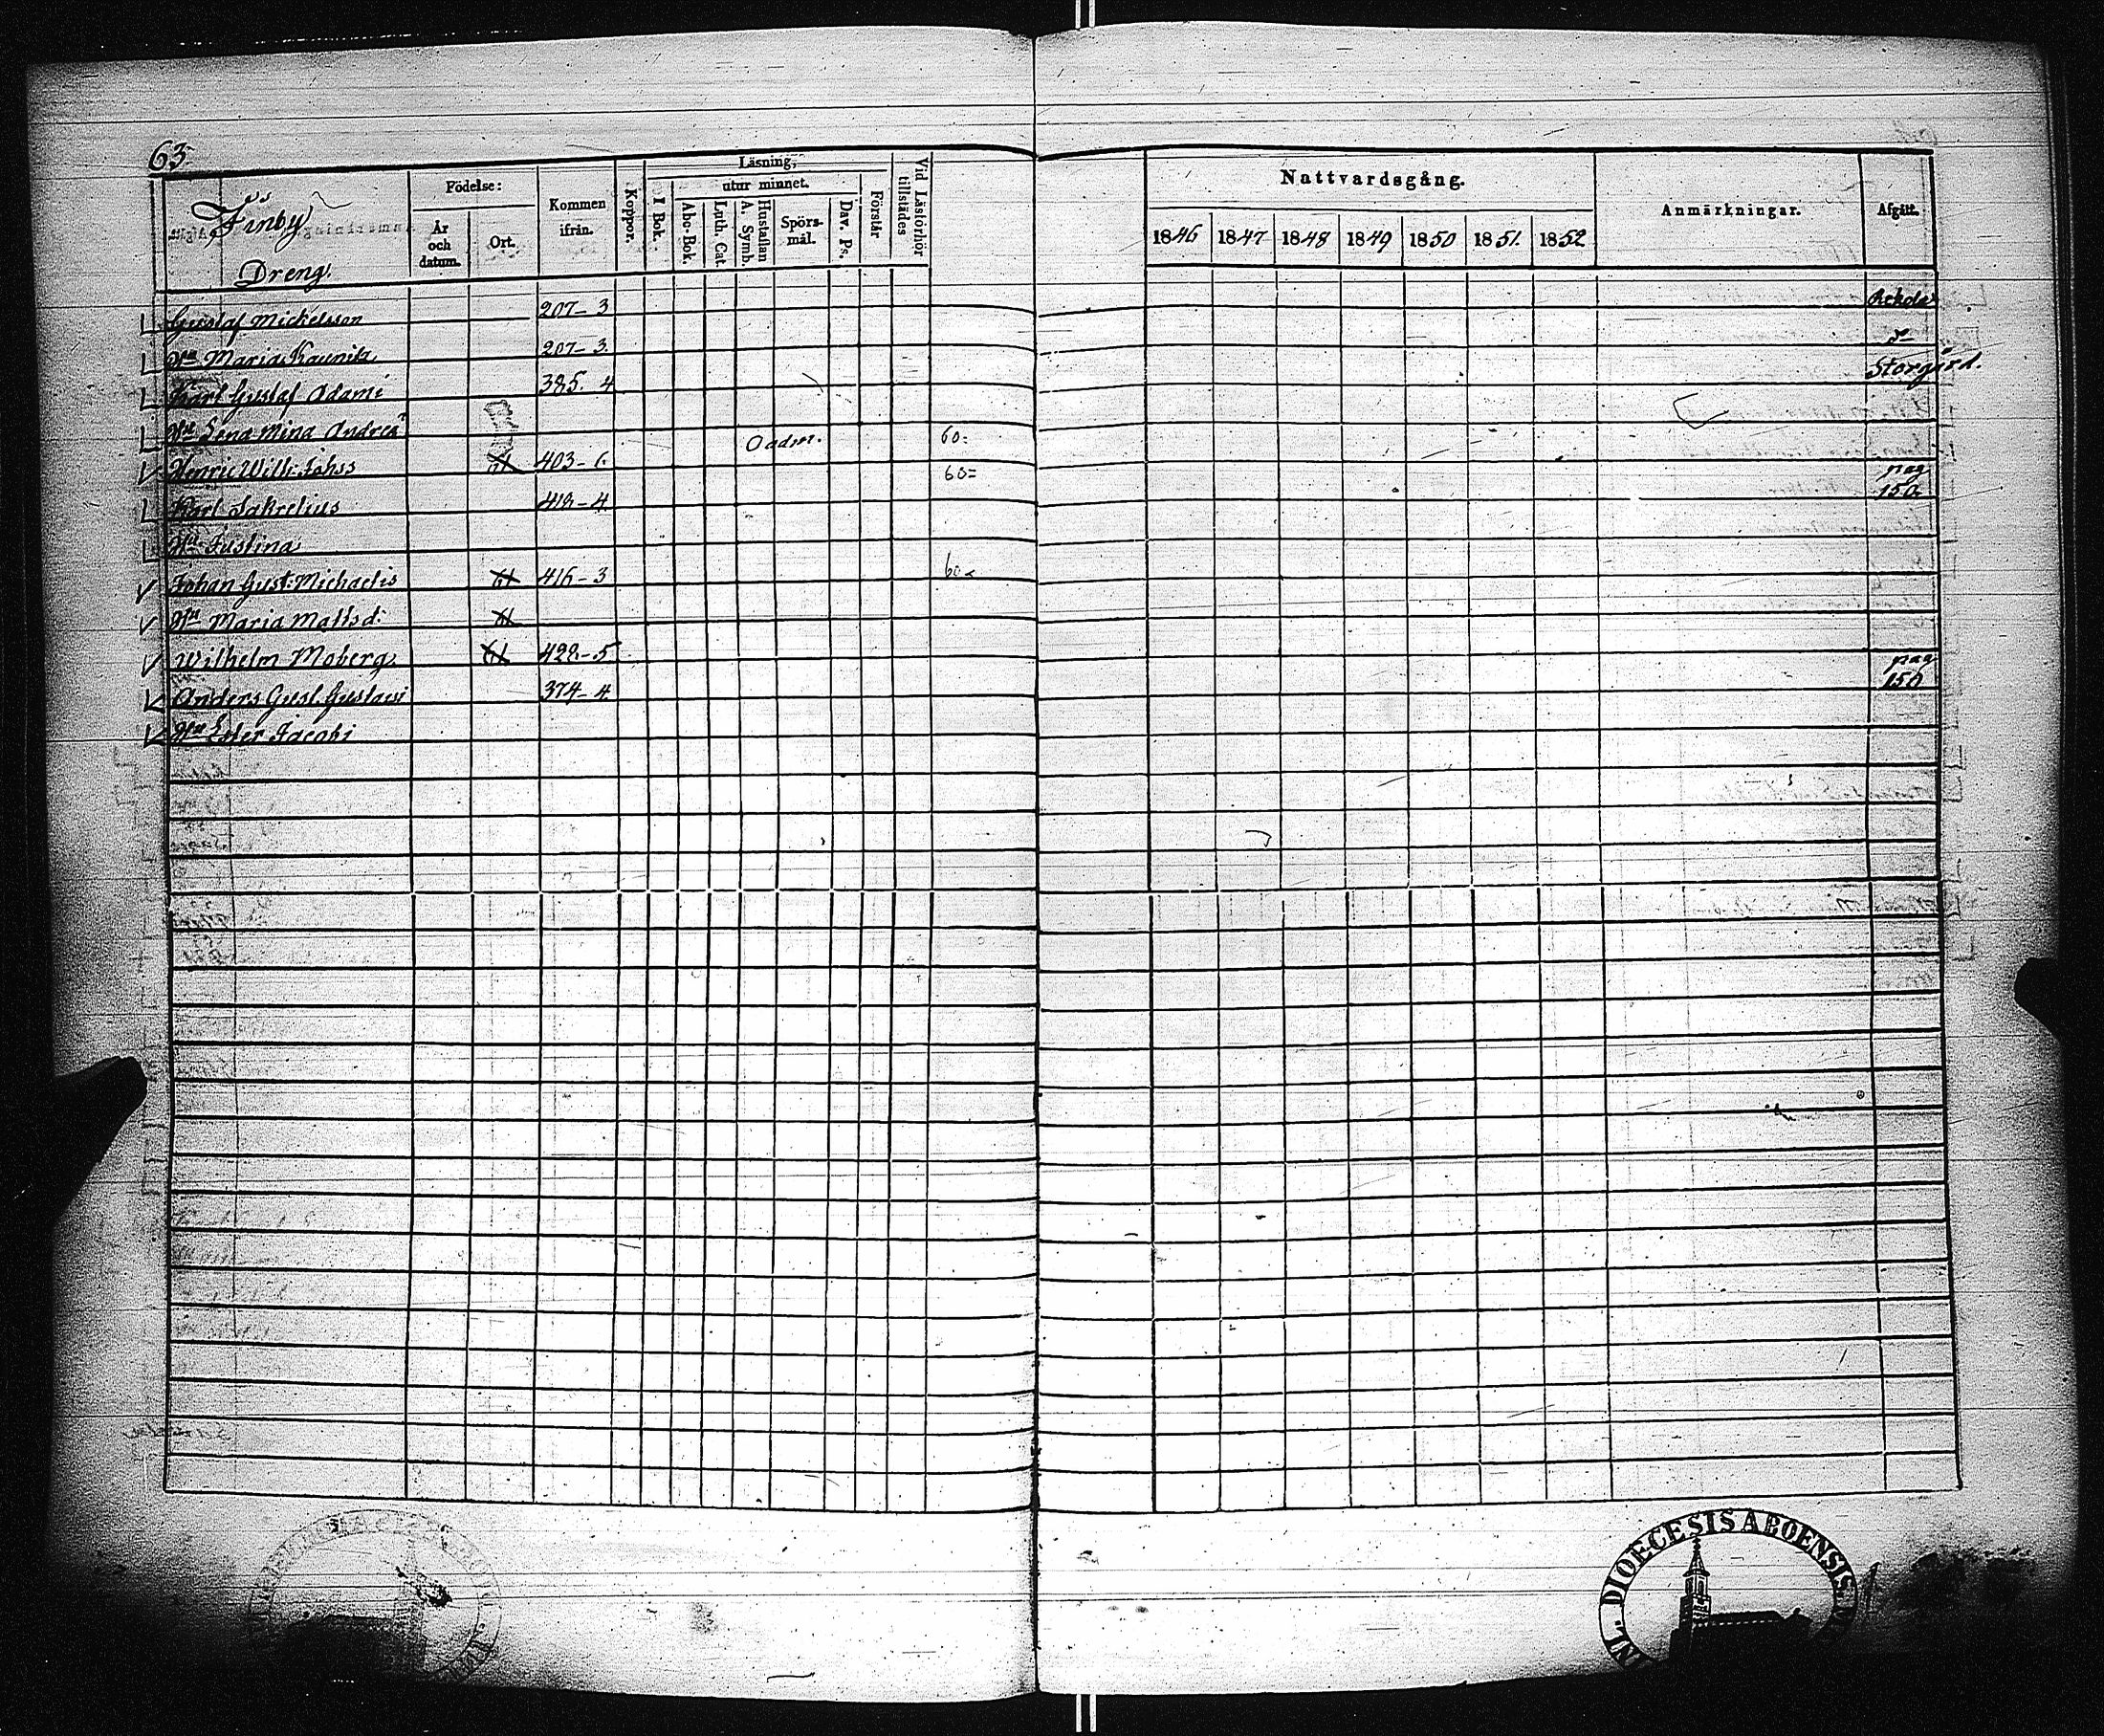 63
Finby
Dreng
Födelse:
År och datum.
Ort.
Kommen ifrån.
Koppor.
Läsning,
I Bok.
utur minnet.
Abc-Bok.
Luth. Cat.
A. Symb.
Hustaflan
Spörsmål.
Dav. Ps.
Förstår
Vid Läsförhör tillstädes
Nattvardsgång.
1846 1847 1848 1849 1850 1851. 1852
Anmärkningar.
Afgått.
Gustaf Mickelsson 207-3
Hu Maria 207-3.
Karl Gustaf Adami 385. 4 Storgård.
Hu Lena Mina Andreä
Henric Wilh: Johss 403-6. Oadm. 60=
Karl Sakrelius 418-4 60= pag 150
Hu Justina
Johan Gust: Michaelis 416-3 60
Hu Maria Mattsd:
Wilhelm Moberg 422-5
Anders Gust. Gustavi 374-4. pag 150
Hu Ester Jacobi
DIOECESIS ABOENSIS